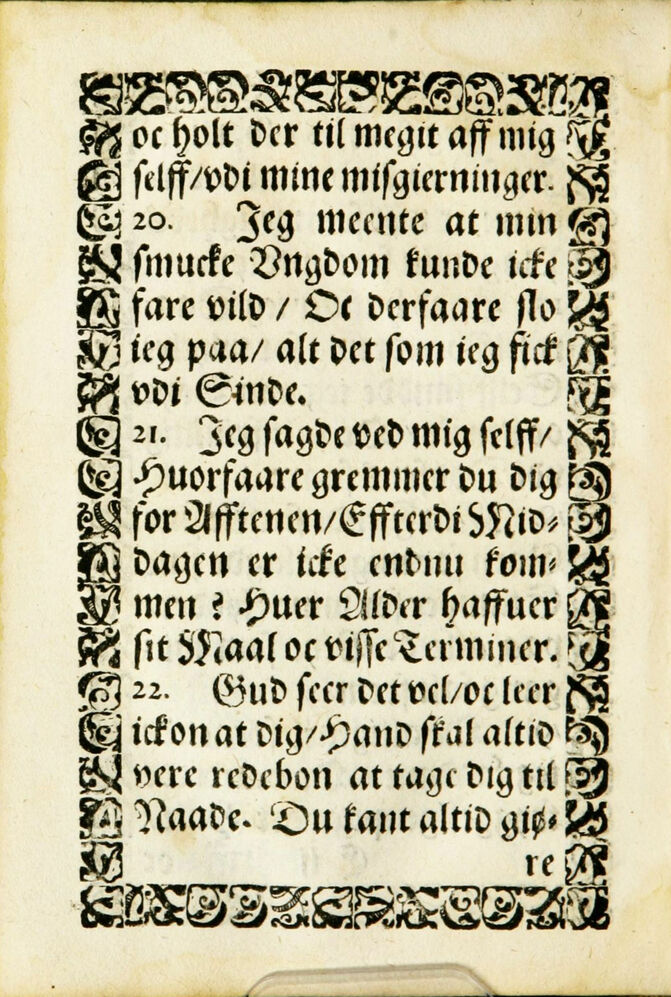 oc holt der til megit aff mig
selff/vdi mine misgierninger.
20. Jeg meente at min
smucke Vngdom kunde icke
fare vild / Oc derfaare slo
ieg paa/ alt det som ieg fick
vdi Sinde.
21. Jeg sagde ved mig selff/
Huorfaare gremmer du dig
for Afftenen/Effterdi Mid-
dagen er icke endnu kom-
men ? Huer Alder haffuer
sit Maal oc visse Terminer.
22. Gud seer det vel/oc leer
ickon at dig/Hand skal altid
vere redebon at tage dig til
Naade. Du kant altid giø-
re